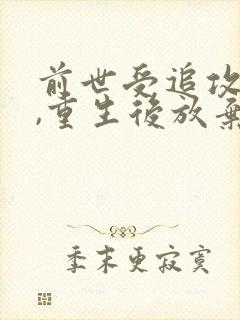 前世受追攻
,重生後放棄
季末更寂寞